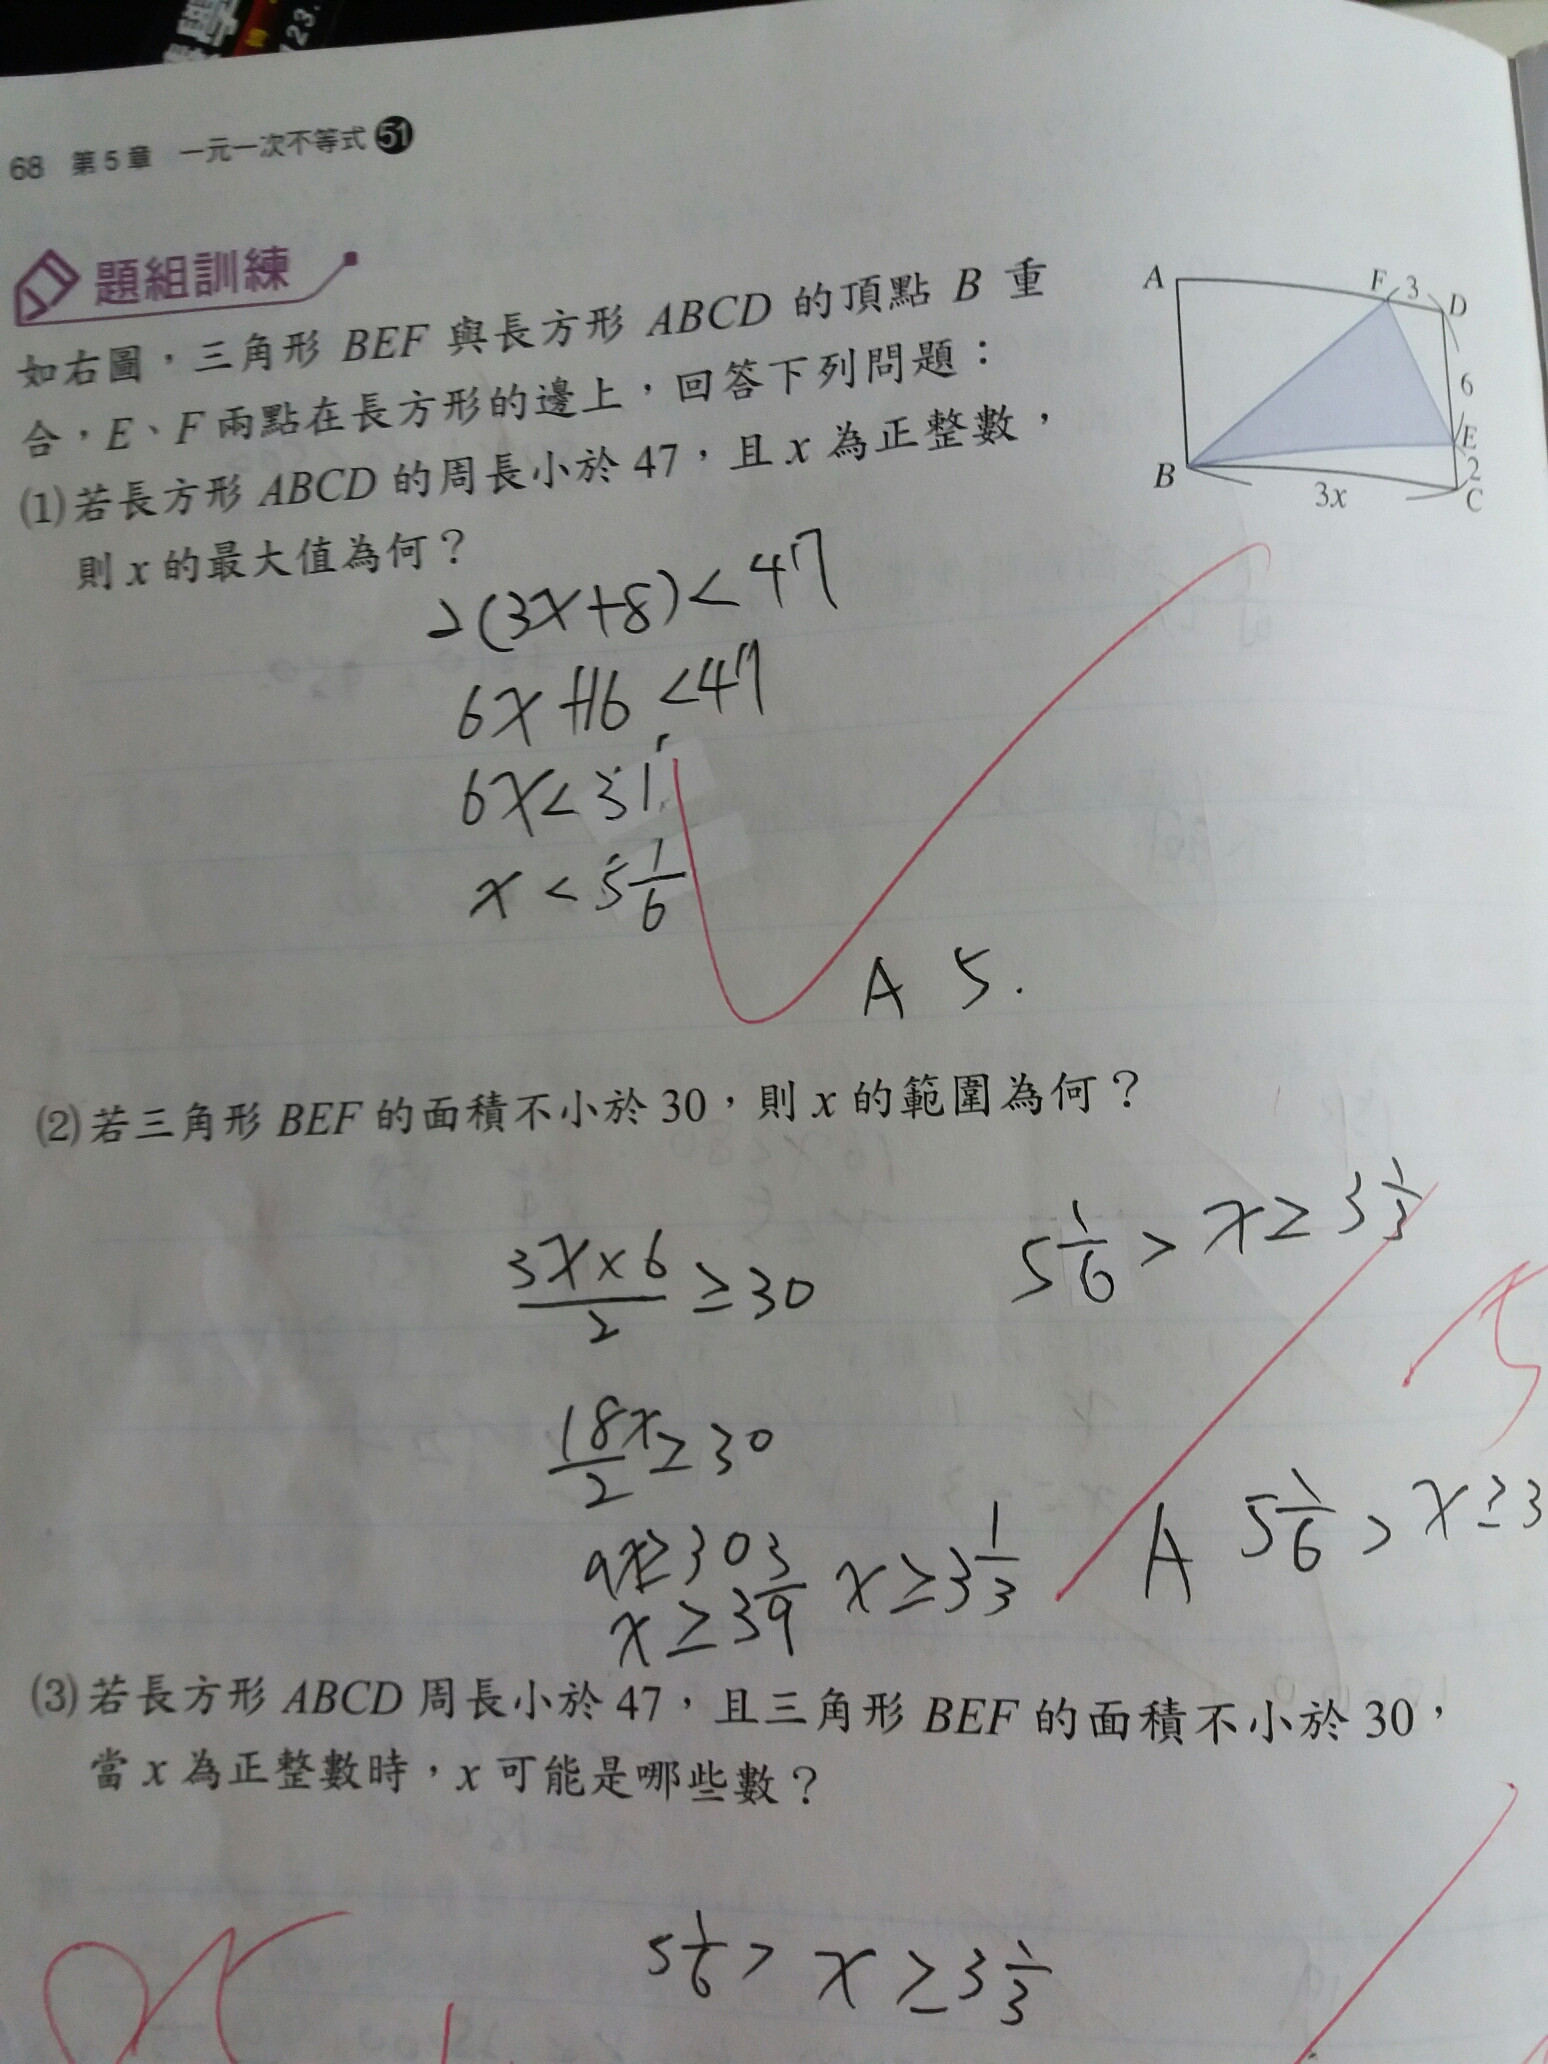 123.
68 第5章 一元一次不等式 51
題組訓練
如右圖，三角形 BEF 與長方形 ABCD 的頂點 B 重
合，E、F 兩點在長方形的邊上，回答下列問題：
(1)若長方形 ABCD 的周長小於 47，且 x 為正整數，
則 x 的最大值為何？
A F 3 D
6
E
2
B 3x C
2(3x+8)<47
6x+16<47
6x<31
x<5 1/6
A 5.
(2)若三角形 BEF 的面積不小於 30，則 x 的範圍為何？
3x×6/2 ≥30
5 1/6 > x ≥ 3 1/3
18x/2 ≥30
9x≥30
x≥3 3/9 x≥3 1/3
A 5 1/6 > x ≥3
(3)若長方形 ABCD 周長小於 47，且三角形 BEF 的面積不小於 30，
當 x 為正整數時，x 可能是哪些數？
5 1/6 > x ≥3 1/3